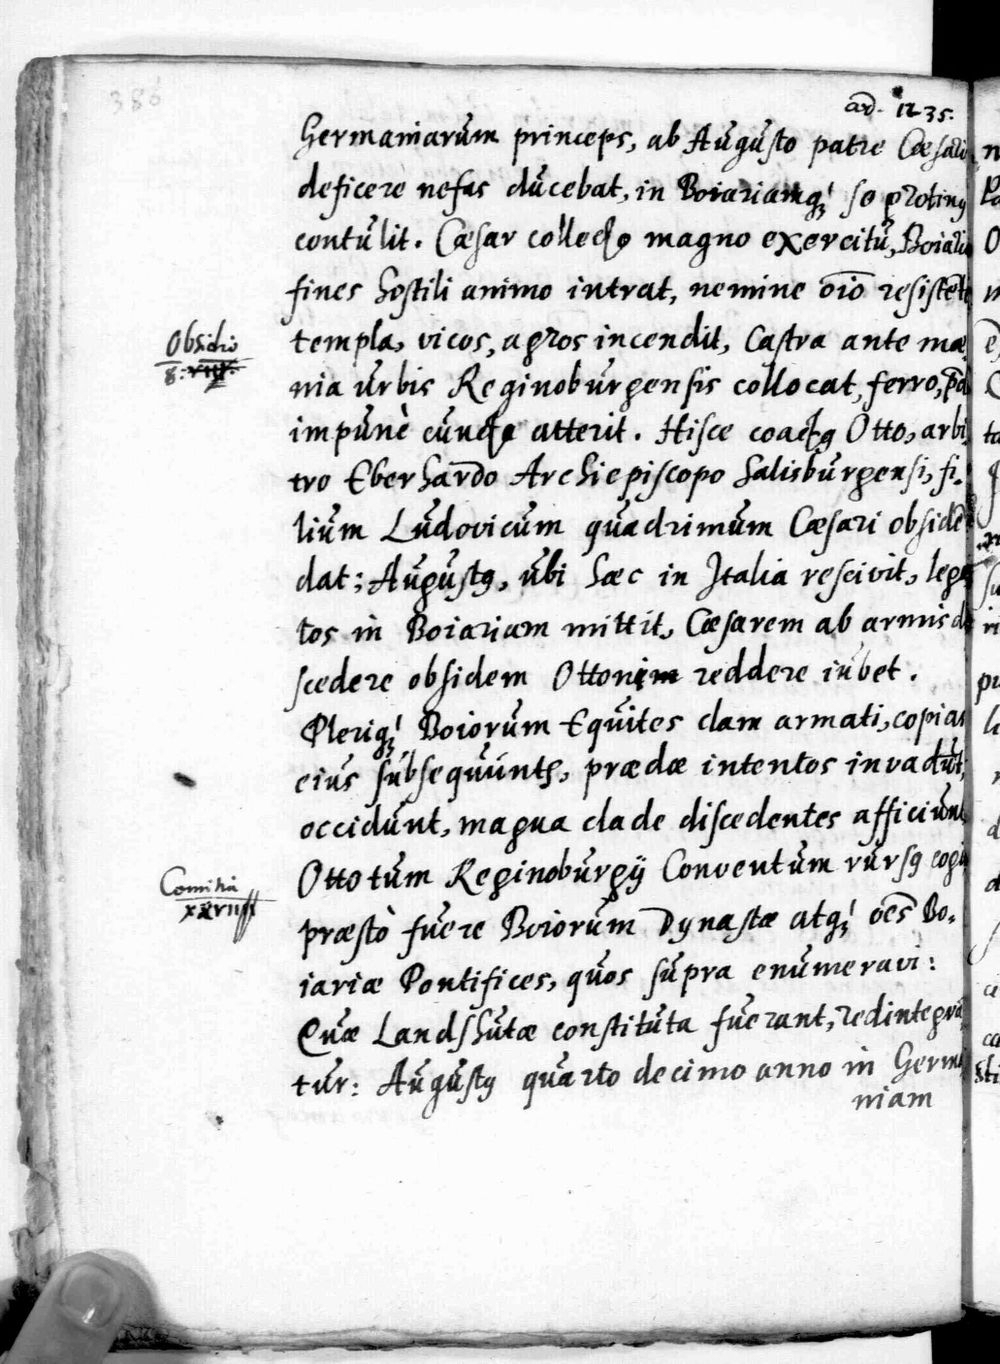 386
ad. 1235.
Germaniarum princeps, ab Augusto patre Cæsare
deficere nefas ducebat, in Boiariamq; se protinq
contulit. Cæsar collecto magno exercitu, Boiariæ
fines hostili animo intrat, nemine oīo resistēte
templa, vicos, agros incendit, Castra ante mœ
Obsidio
8.
nia urbis Reginoburgensis collocat, ferro,
impunè cuncta atterit. Hisce coactq Otto, arbi
tro Eberhardo Archiepiscopo Salisburgensi, fi.
lium Ludovicum quadrimum Cæsari obsidē
dat; Augustq, ubi hæc in Italia rescivit, lega
tos in Boiariam mittit, Cæsarem ab armis di
scedere obsidem Ottonim reddere iubet.
Plerиq; Boiorum Equites clam armati, copias
eius subsequuntes, prædæ intentos invadūt,
occidunt, magna clade discedentes afficiunt
Otto tum Reginoburgij Conventum rursq cogit
Comitia
xxviii
præstò fuere Boiorum Dynastæ atq; oēs Bo.
iariæ Pontifices, quos supra enumeravi:
Quæ Landshutæ constituta fuerant, redintegrā
tur: Augustq quarto decimo anno in Germa
niam